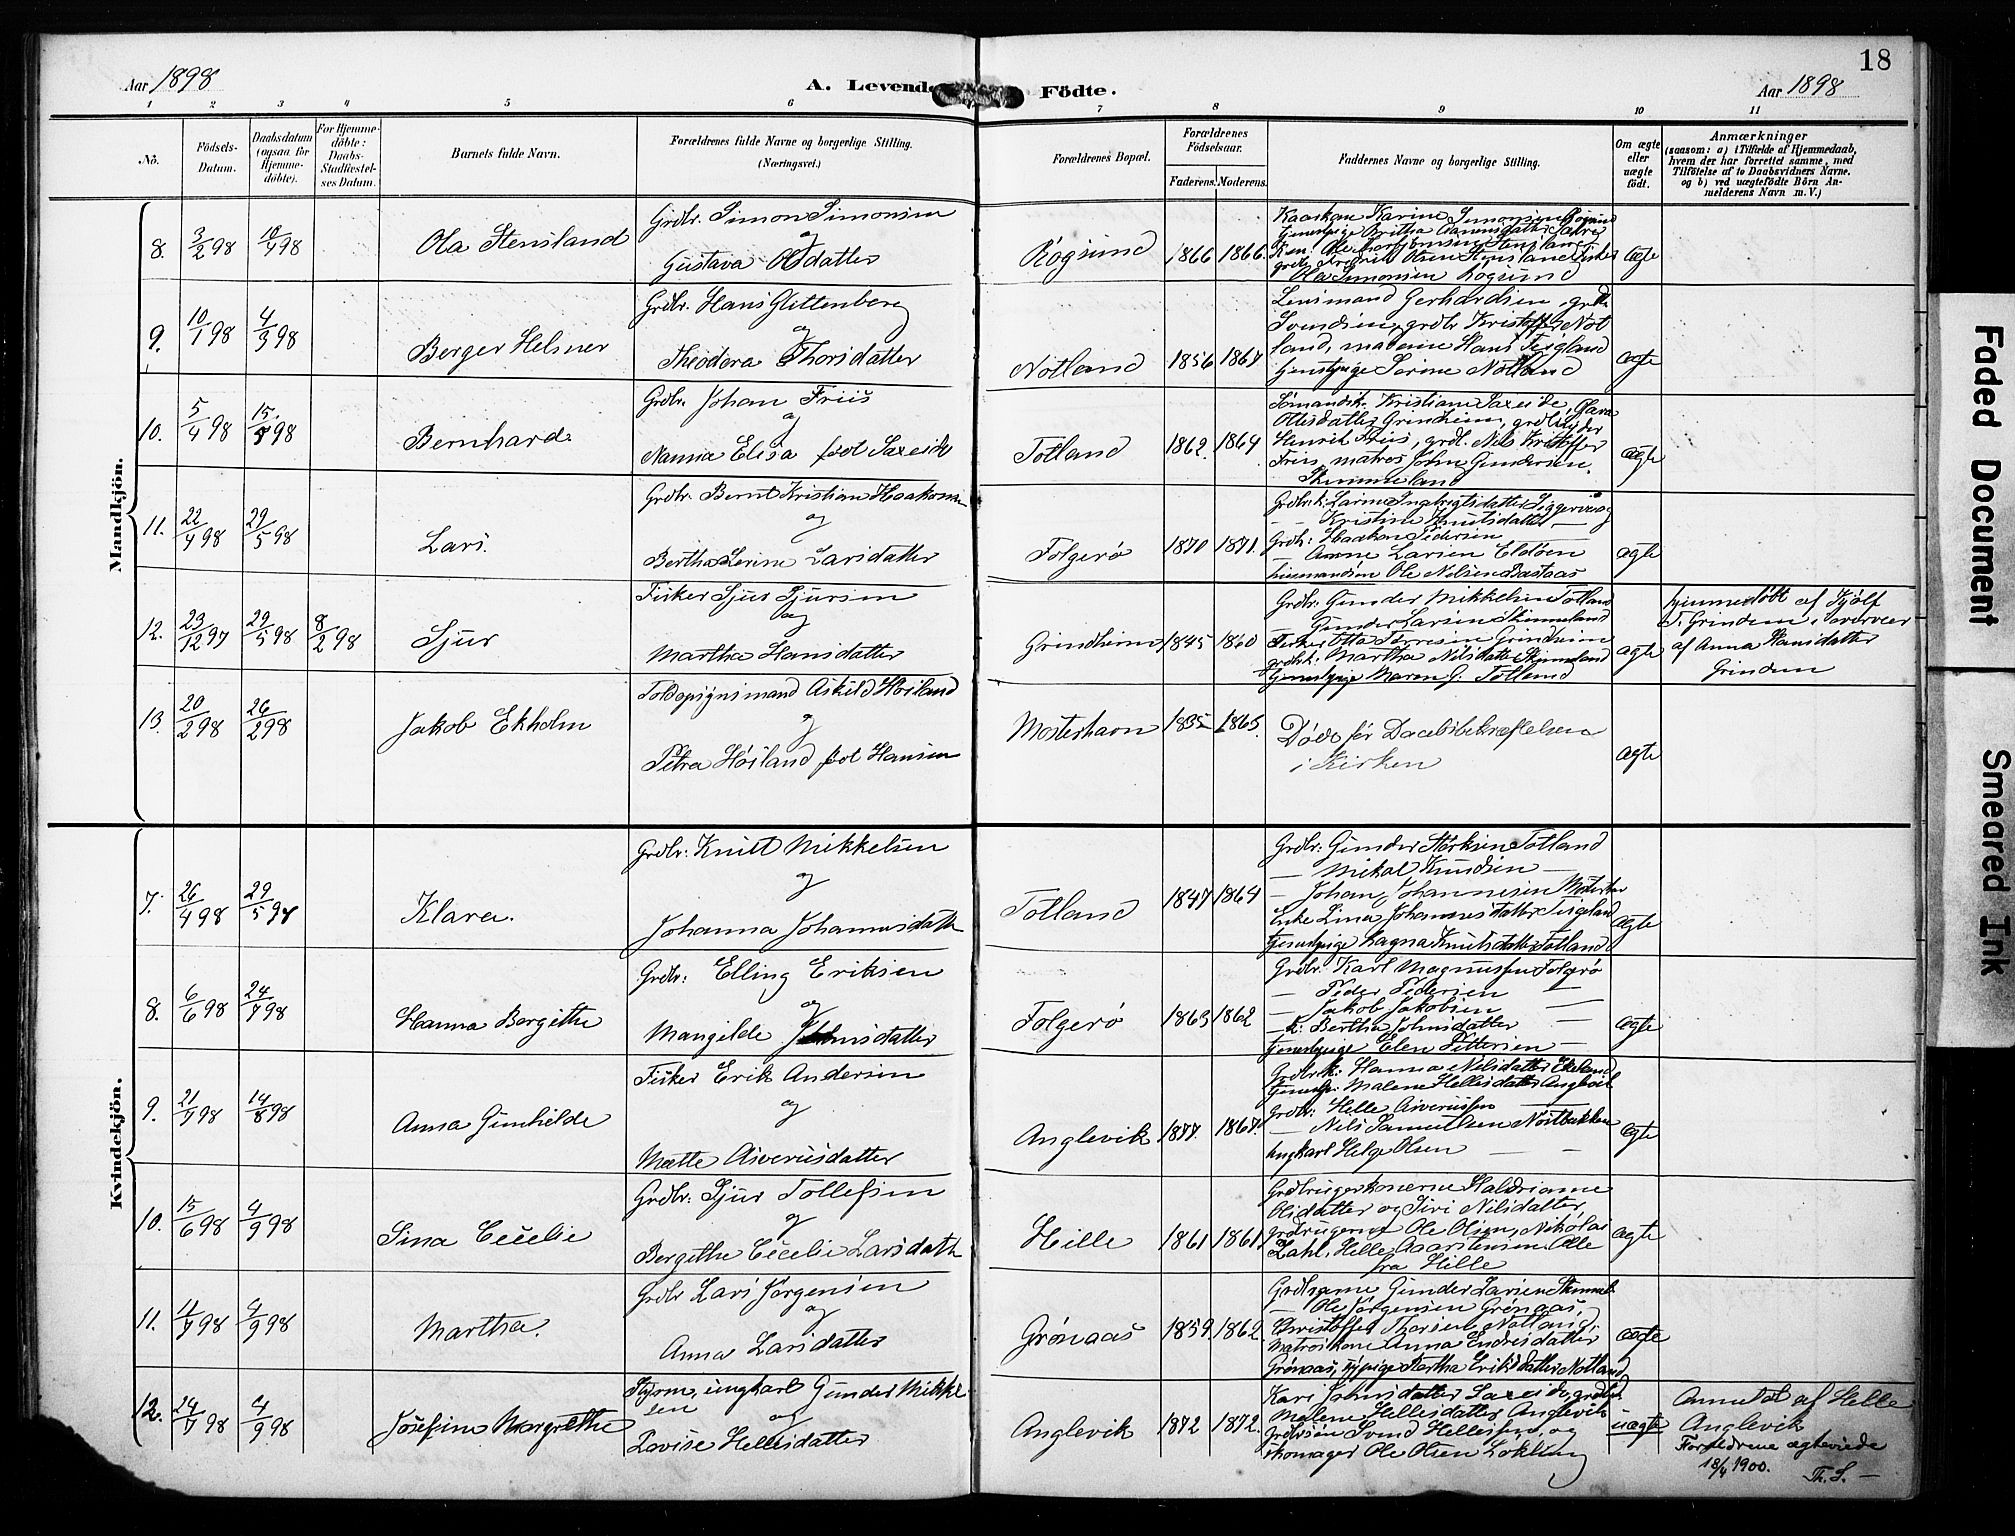 18
Aar 1898
A. Levende Födte.
Aar 1898
1 2 3 4 5 6 7 8 9 10 11
No.
Födsels-Datum.
Daabsdatum (ogsaa for Hjemme-döbte).
For Hjemme-döbte: Daabs-Stadfæstelses Datum.
Barnets fulde Navn.
Forældrenes fulde Navne og borgerlige Stilling. (Næringsvei.)
Forældrenes Bopæl.
Forældrenes Födselsaar.
Faderens. Moderens.
Faddernes Navne og borgerlige Stilling.
Om ægte eller uægte født.
Anmærkninger
(saasom: a) i Tilfælde af Hjemmedaab, hvem der har forrettet samme, med Tilföielse af to Daabsvidners Navne. og b) ved uægtefödte Börn Anmelderens Navn m. V.)
Mandkjön.
8. 3/2 98 10/4 98 Ola Stensland
Grdbr. Simon Simonsen
og
Gustava Olsdatter
Røgsund 1866 1866.
Ola Simonsen Røgsund
ægte
9. 10/1 98 4/3 98 Berger Helmer
Grdbr. Hans Glittenberg
og
Theodora Thorsdatter
Notland 1856 1867
Lensmand Gerhardsen, grdbr
Svendsen, grdbr Kristoffer Not
land, madame Hans Teigland
tjenestpige Serine Notland
ægte
10. 5/4 98 15/5 98 Bernhard.
Grdbr. Johan Friis
og
Nanna Elisa født Saxeide
Totland 1862. 1864
Henrik Friis, grdl. Nils Kristoffer
Friis, matros John Gundersen.
Skimmeland
ægte
11. 22/4 98 29/5 98 Lars.
Grdbr. Bernt Kristian Haakonsen
og
Bertha Serine Larsdatter
Folgerø 1870 1871.
— — Kristine Knutsdatter —
Grdbr: Haakon Pedersen
— Anne Larsen Eldøen
ægte
12. 23/12 97 29/5 98 8/2 98 Sjur
Fisker Sjur Sjursen
og
Martha Hansdatter
Grindheim 1845 1860
Grdbr. Gunder Mikkelsen Totland
— Gunder Larsen Skimmeland
grdbrk: Martha Nilsdatter Skimmeland
Tjenestpige Maren G. Totland
ægte
hjemmedøbt af Kjølf
T. Grindem i overvær
af Anna Hansdatter
Grindem
13. 20/2 98 26/2 98 Jakob Ekholm
Toldopsynsmand Askild Høiland
og
Petra Høiland født Hansen
Mosterhavn 1835 1865.
Døde før Daabsbekræftelsen
i Kirken
ægte
Kvindekjön.
7. 26/4 98 29/5 98 Klara.
Grdbr: Knut Mikkelsen
og
Johanna Johannesdatter
Totland 1847 1864
Grdbr: Gunder Størksen Totland
— Mikal Knudsen —
— Johan Johannesen Mosterhavn
Enke Lina Johannesdatter Teigeland
Tjenestpige Ragna Knutsdatter Totland
ægte
8. 6/6 98 24/7 98 Hanna Bergithe
Grdbr: Elling Eriksen
og
Mangilde Johnsdatter
Folgerø 1863 1862
Grdbr: Karl Magnussen Folgerø
— Peder Pedersen —
— Jakob Jakobsen —
—k: Bertha Johnsdatter —
tjenestpige Elen Pettersen —
ægte
9. 21/7 98 14/8 98 Anna Gunhilde
Fisker Erik Andersen
og
Mette Aiverusdatter
Anglevik 1877. 1867.
Grdbrk: Hanna Nilsdatter Ekeland
Tjenestp: Malene Hellesdatter Anglevik
Grdbr: Helle Aiverussen
— Nils Samuelsen Nordbakken
Ungkarl Helge Olsen — —
ægte
10. 15/6 98 4/9 98 Sina Cecelie
Grdbr: Sjur Tollefsen
og
Bergithe Cecelie Larsdatter
Hille 1861 1861
Grdbrugerkonerne Haldrianne
Olsdatter og Siri Nilsdatter,
grdbrugerne Ole Olsen, Nikolai
Dahl, Helle Aarstensen alle
fra Hille
ægte
11. 4/7 98 4/9 98 Martha.
Grdbr Lars Jørgensen
og
Anna Larsdatter
Grønaas 1859. 1862.
Grdbrgerne Gunder Larsen Skimmel.
— Ole Jørgensen Grønaas,
Christoffer Thorsen Notland,
Matroskone Anna Endresdatter
Grønaas, tjpige Martha Eriksdatter Notland
ægte
12. 24/7 98 4/9 98 Josefine Margrethe
Styrm. ungkarl Gunder Mikkel
sen
og
Lovise Hellesdatter
Anglevik 1872 1872.
Kari Johnsdatter Saxeide, grdbr
Malene Hellesdatter Anglevik
Grdbrsøn Svend Hellesen, og
skomager Ole Olsen Løkling
uægte
Anmeldt af Helle
Anglevik
Forældrene ægteviede
18/4 1900. Th. S. —
Faded Document
Smeared Ink